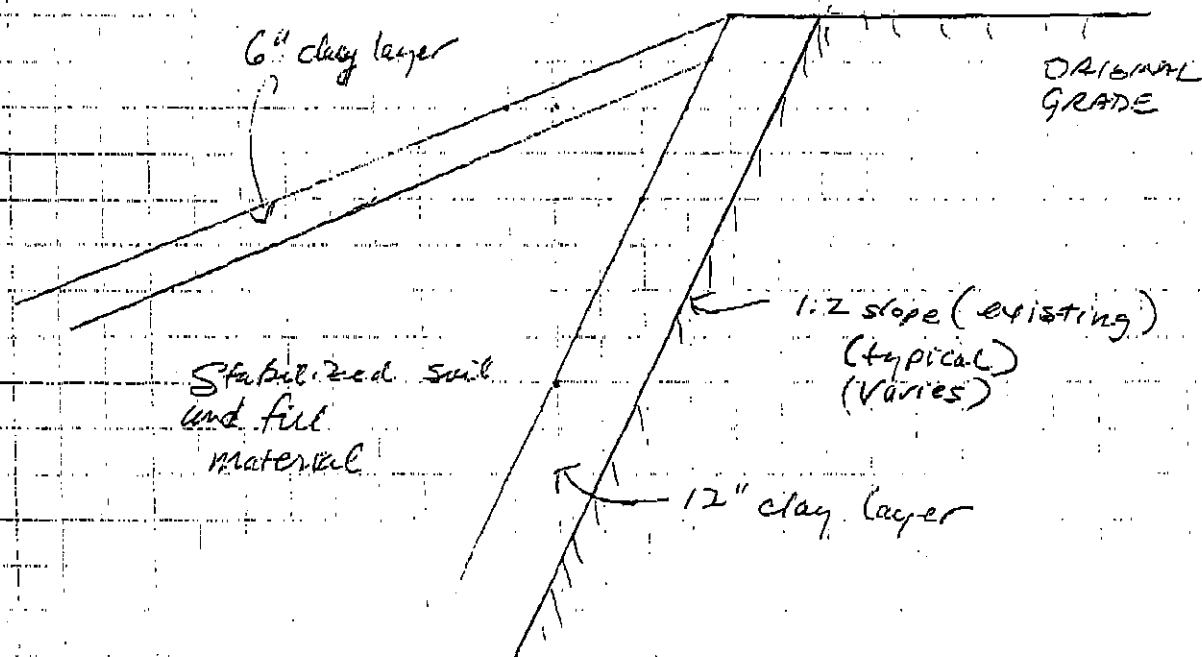 6" clay layer
ORIGINAL
GRADE
1:2 slope (existing)
(typical)
(Varies)
Stabilized soil
and fill
material
12" clay layer